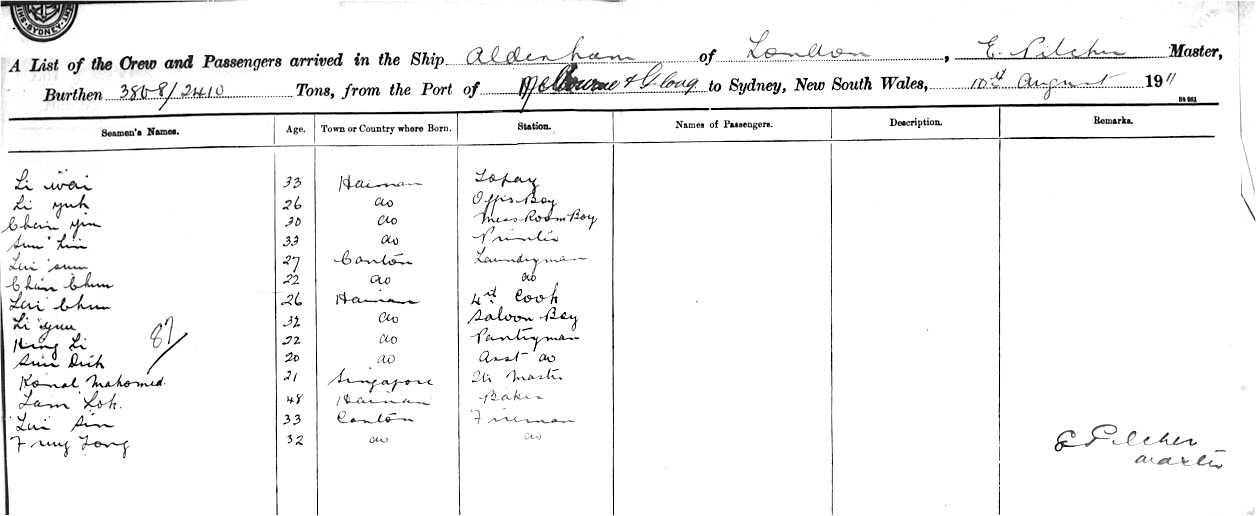 SYDNEY
A List of the Crew and Passengers arrived in the Ship Aldenham of London, E. Pilcher Master,
Burthen 3808/2410 Tons, from the Port of Melbourne & Glong to Sydney, New South Wales, 10th August 1911
Seamen's Names. Age. Town or Country where Born. Station. Names of Passengers. Description. Remarks.
Li Wai 33 Hainan Topaz
Li Yuk 26 do Offis Boy
Chan Yin 30 do Mess Room Boy
Sun Lin 33 do Printer
Lui Sun 27 Canton Laundryman
Chan Chun 22 do do
Lui Chun 26 Hainan 4th Cook
Li Yuu 32 do Saloon Boy
Hing Li 22 do Pantryman
Sun Dick 20 do Asst do
87
Komal Mahomed. 21 Singapore Str Master
Lam Loh. 48 Hainan Baker
Lui Sin 33 Canton Fireman
Fung Tong 32 do do
E Pilcher
Master